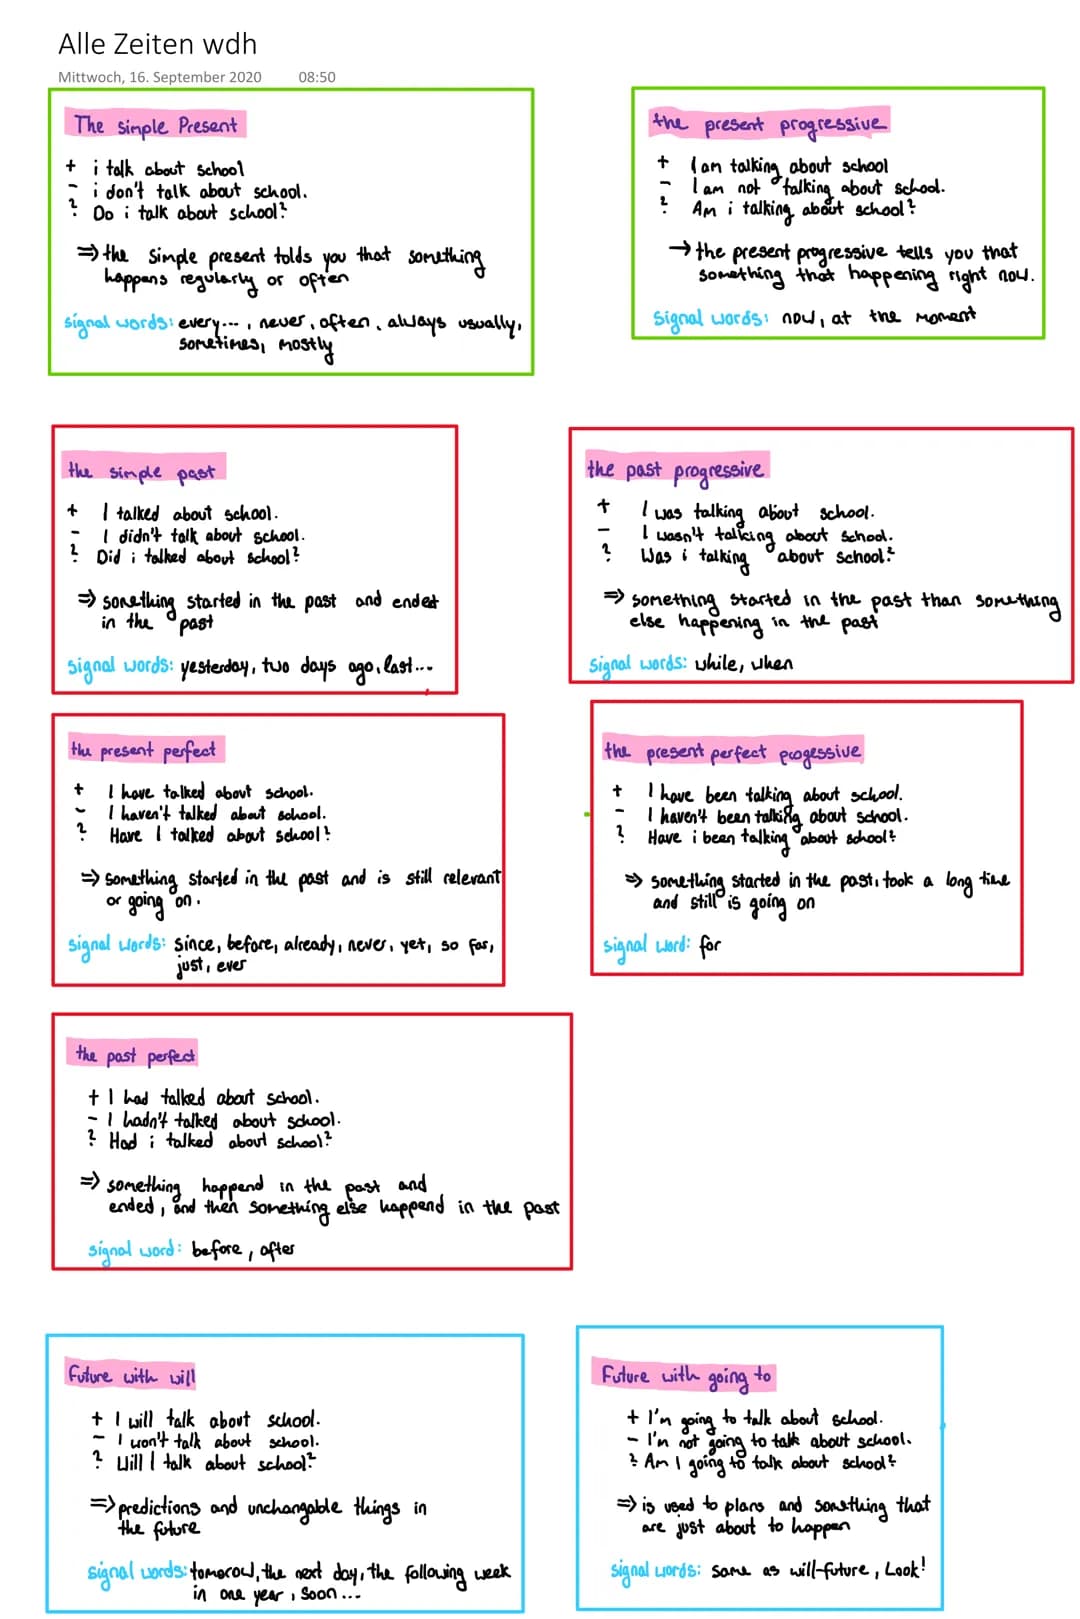 Alle Zeiten wdh
Mittwoch, 16. September 2020 08:50
The simple Present
+ i talk about school
- i don't talk about school.
? Do i talk about school?
⇒ the simple present tolds you that something
happens regularly or often
signal words: every..., never, often, always usually,
sometimes, mostly
the present progressive
+ I am talking about school
- I am not talking about school.
? Am i talking about school?
→ the present progressive tells you that
something that happening right now.
signal words: now, at the moment
the simple past
+ I talked about school.
- I didn't talk about school.
? Did i talked about school?
⇒ something started in the past and ended
in the past
signal words: yesterday, two days ago, last...
the past progressive
+ I was talking about school.
- I wasn't talking about school.
? Was i talking about school?
⇒ something started in the past than something
else happening in the past
signal words: while, when
the present perfect
+ I have talked about school.
- I haven't talked about school.
? Have I talked about school?
⇒ something started in the past and is still relevant
or going on.
signal words: since, before, already, never, yet, so far,
just, ever
the present perfect progessive
+ I have been talking about school.
- I haven't been talking about school.
? Have i been talking about school?
⇒ something started in the past, took a long time
and still is going on
signal word: for
the past perfect
+ I had talked about school.
- I hadn't talked about school.
? Had i talked about school?
⇒ something happend in the past and
ended, and then something else happend in the past
signal word: before, after
Future with will
+ I will talk about school.
- I won't talk about school.
? Will I talk about school?
⇒ predictions and unchangable things in
the future
signal words: tomorow, the next day, the following week
in one year, soon...
Future with going to
+ I'm going to talk about school.
- I'm not going to talk about school.
? Am I going to talk about school?
⇒ is used to plans and something that
are just about to happen
signal words: same as will-future, Look!